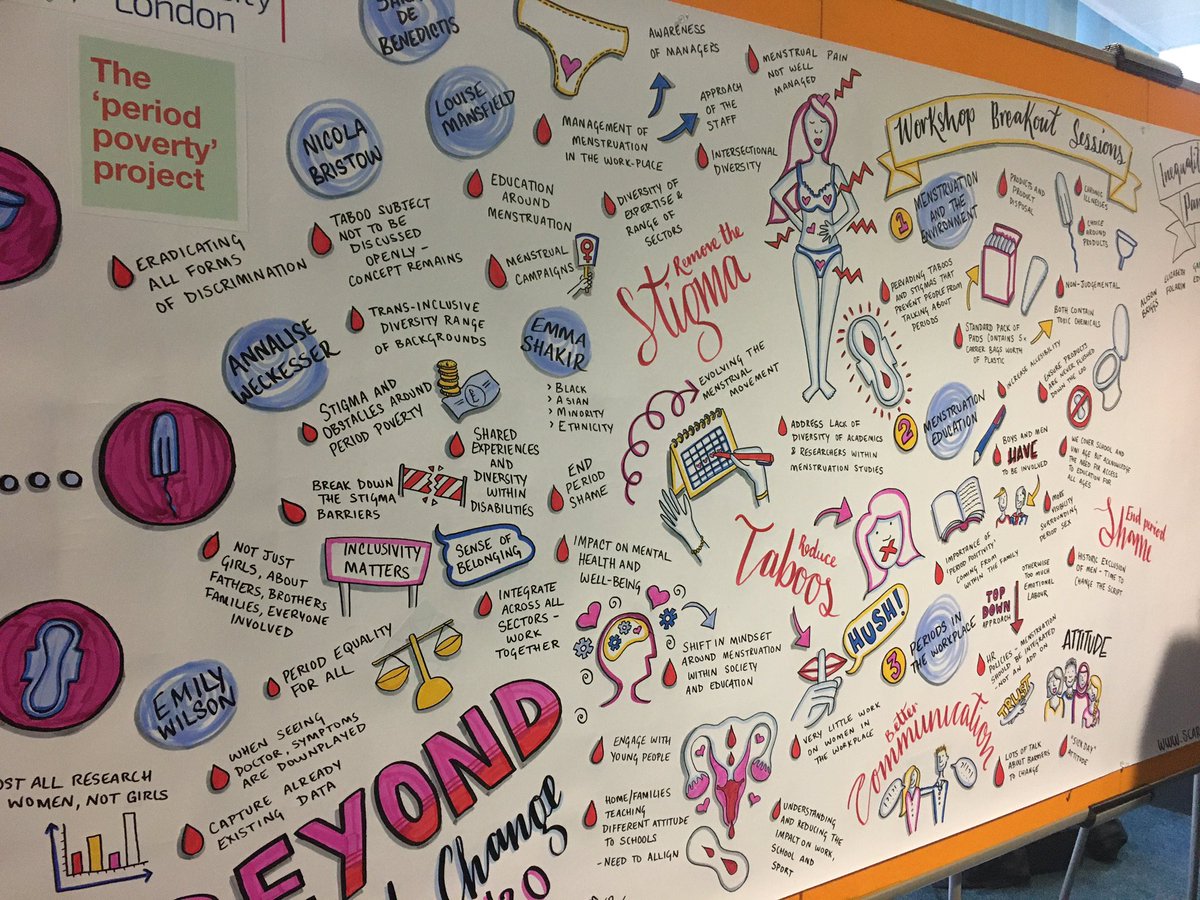 London
The
'period
poverty'
project
DE
BENEDICTIS
LOUISE
MANSFIELD
NICOLA
BRISTOW
AWARENESS
OF MANAGERS
MENSTRUAL PAIN
NOT WELL
MANAGED
APPROACH
OF THE
STAFF
MANAGEMENT OF
MENSTRUATION
IN THE WORK-PLACE
INTERSECTIONAL
DIVERSITY
ERADICATING
ALL FORMS
OF DISCRIMINATION
TABOO SUBJECT
NOT TO BE
DISCUSSED
OPENLY -
CONCEPT REMAINS
EDUCATION
AROUND
MENSTRUATION
DIVERSITY OF
EXPERTISE &
RANGE OF
SECTORS
MENSTRUAL
CAMPAIGNS
Remove the
Stigma
ANNALISE
WECKESSER
TRANS-INCLUSIVE
DIVERSITY RANGE
OF BACKGROUNDS
EMMA
SHAKIR
> BLACK
> ASIAN
> MINORITY
> ETHNICITY
STIGMA AND
OBSTACLES AROUND
PERIOD POVERTY
£
EVOLVING THE
MENSTRUAL
MOVEMENT
SHARED
EXPERIENCES
AND
DIVERSITY
WITHIN
DISABILITIES
BREAK DOWN
THE STIGMA
BARRIERS
END
PERIOD
SHAME
ADDRESS LACK OF
DIVERSITY OF ACADEMICS
& RESEARCHERS WITHIN
MENSTRUATION STUDIES
NOT JUST
GIRLS, ABOUT
FATHERS, BROTHERS
FAMILIES, EVERYONE
INVOLVED
INCLUSIVITY
MATTERS
SENSE OF
BELONGING
IMPACT ON MENTAL
HEALTH AND
WELL-BEING
Reduce
Taboos
INTEGRATE
ACROSS ALL
SECTORS -
WORK
TOGETHER
HUSH!
EMILY
WILSON
PERIOD EQUALITY
FOR ALL
SHIFT IN MINDSET
AROUND MENSTRUATION
WITHIN SOCIETY
AND EDUCATION
WHEN SEEING
DOCTOR, SYMPTOMS
ARE DOWNPLAYED
CAPTURE ALREADY
EXISTING
DATA
ALL RESEARCH
WOMEN, NOT GIRLS
BEYOND
Change
ENGAGE WITH
YOUNG PEOPLE
HOME/FAMILIES
TEACHING
DIFFERENT ATTITUDE
TO SCHOOLS
- NEED TO ALLIGN
VERY LITTLE WORK
ON WOMEN IN
THE WORKPLACE
UNDERSTANDING
AND REDUCING THE
IMPACT ON WORK,
SCHOOL AND
SPORT
Workshop Breakout Sessions
1
MENSTRUATION
AND THE
ENVIRONMENT
PRODUCTS AND
PRODUCT
DISPOSAL
CHRONIC
ILLNESSES
CHOICE
AROUND
PRODUCTS
PERVADING TABOOS
AND STIGMAS THAT
PREVENT PEOPLE FROM
TALKING ABOUT
PERIODS
NON-JUDGEMENTAL
STANDARD PACK OF
PADS CONTAINS 5x
CARRIER BAGS WORTH
OF PLASTIC
BOTH CONTAIN
TOXIC CHEMICALS
INCREASE ACCESIBILITY
ENSURE PRODUCTS
ARE NEVER FLUSHED
DOWN THE LOO
2
MENSTRUATION
EDUCATION
BOYS AND MEN
HAVE
TO BE INVOLVED
WE COVER SCHOOL AND
UNI AGE BUT ACKNOWLEDGE
THE NEED FOR ACCESS
TO EDUCATION FOR
ALL AGES
MORE
VISIBILITY
SURROUNDING
PERIOD SEX
IMPORTANCE OF
'PERIOD POSITIVITY'
COMING FROM
WITHIN THE FAMILY
OTHERWISE
TOO MUCH
EMOTIONAL
LABOUR
End period
Shame
HISTORIC EXCLUSION
OF MEN - TIME TO
CHANGE THE SCRIPT
3
PERIODS IN
THE WORKPLACE
TOP
DOWN
APPROACH
HR
POLICIES - MENSTRUATION
SHOULD BE INTEGRATED
- NOT AN ADD ON
TRUST
ATTITUDE
Better
Communication
LOTS OF TALK
ABOUT BARRIERS
TO CHANGE
"SICK DAY"
ATTITUDE
ELIZABETH
FOLARIN
ALISON
BRIGGS